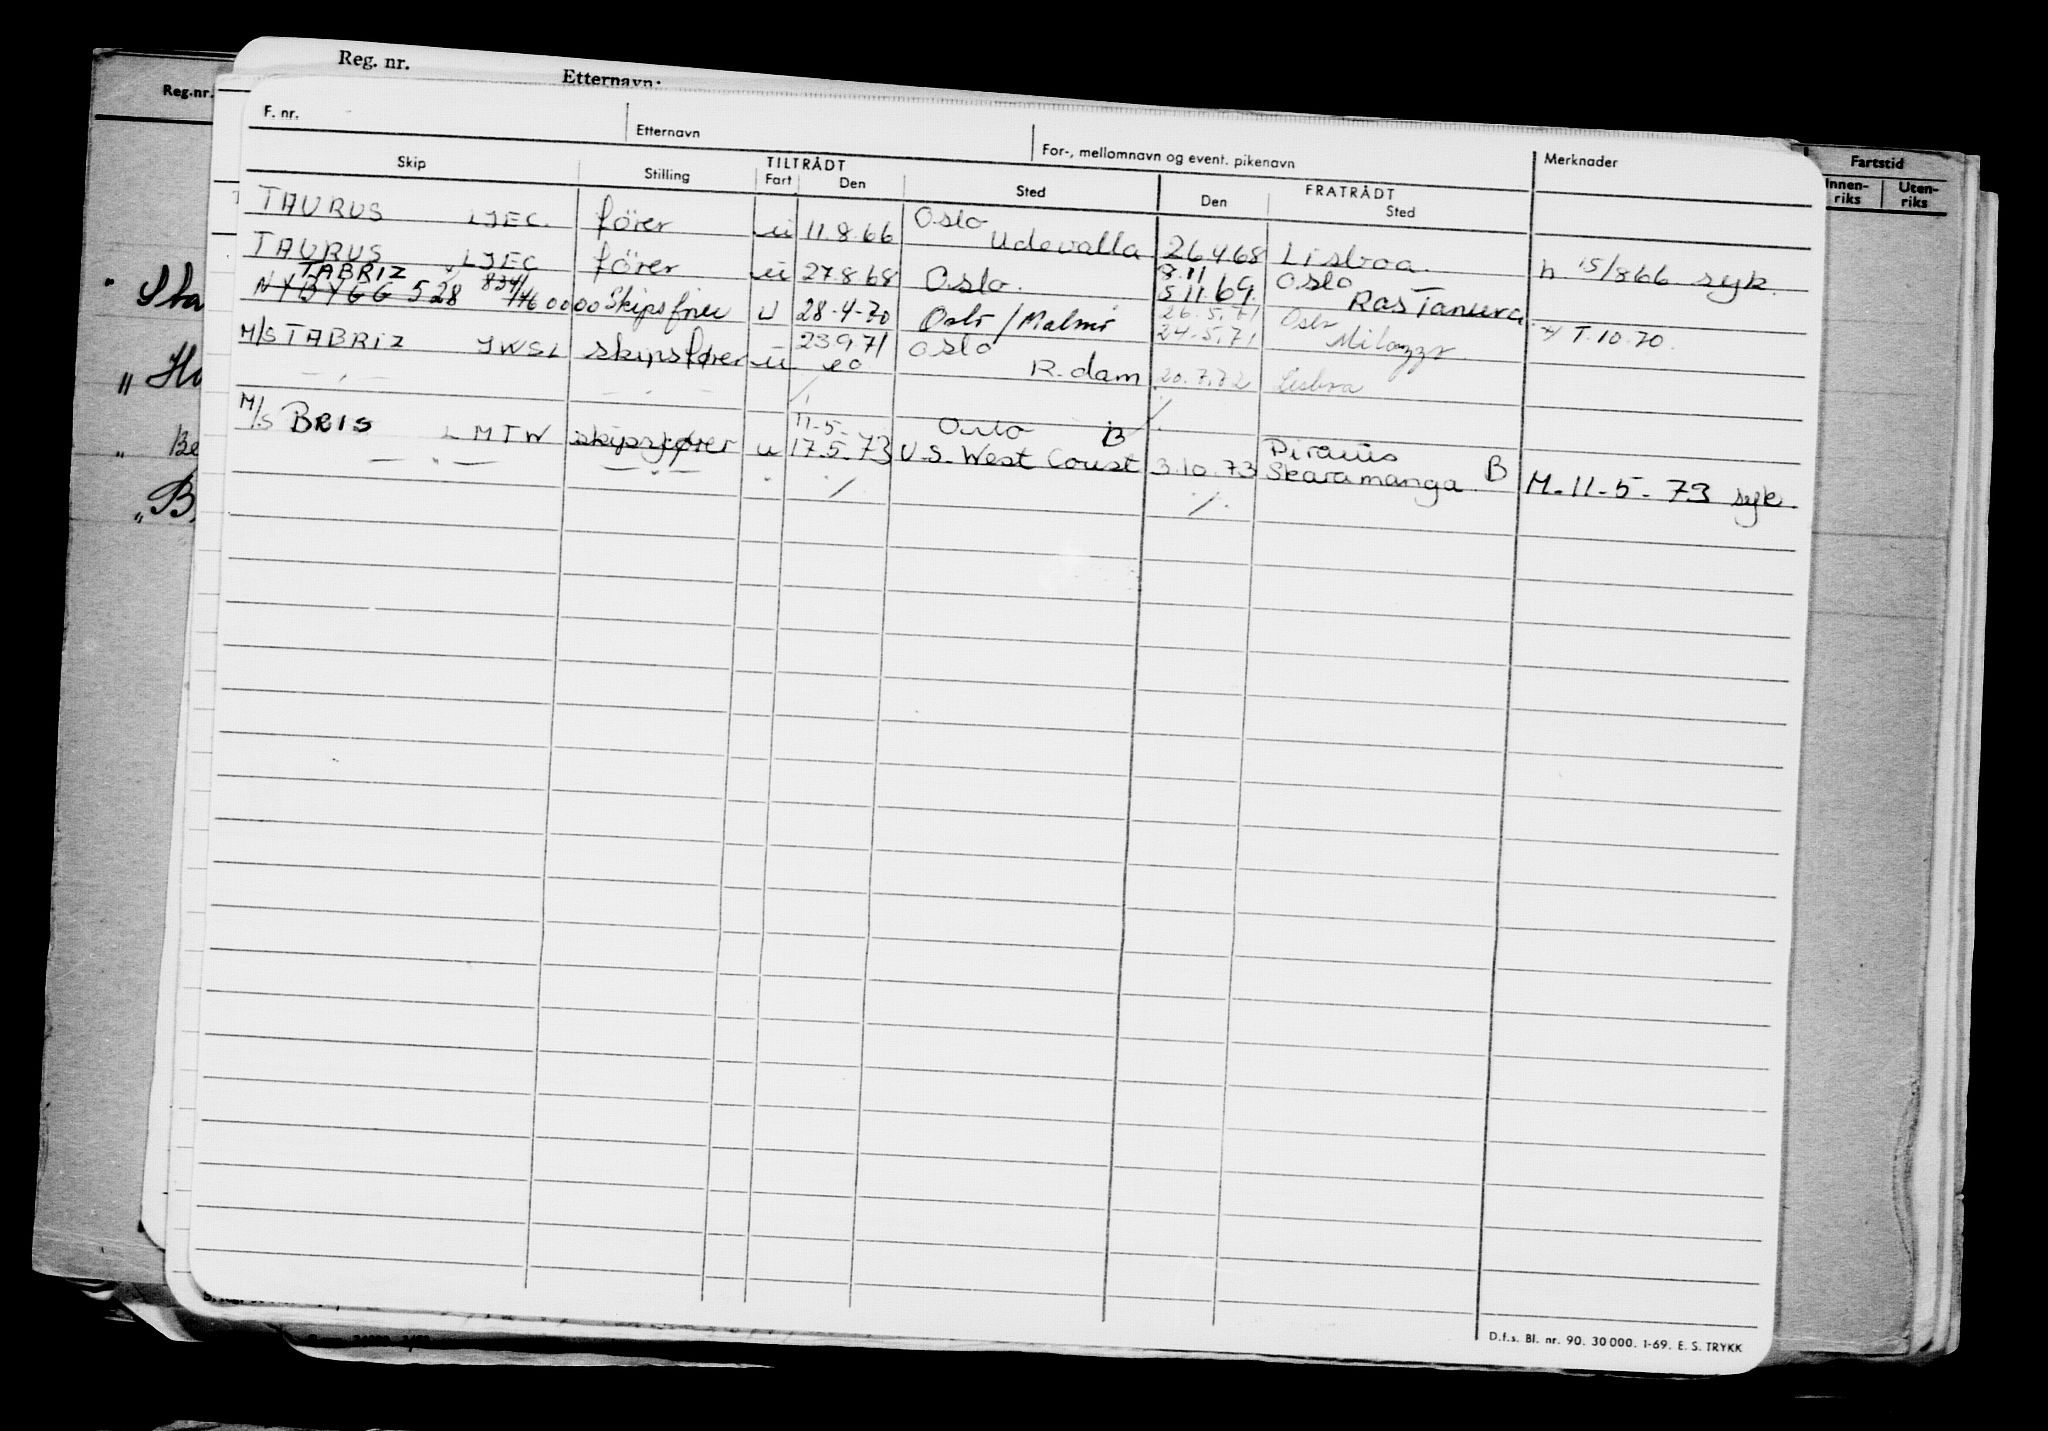 Reg. nr. Etternavn:
Reg.nr. Fartstid
Innen-riks Uten-riks
F. nr. Etternavn For-, mellomnavn og event. pikenavn Merknader
Skip Stilling TILTRÅDT FRATRÅDT
Fart Den Sted Den Sted
TAURUS LJEC. fører u 11.8.66 Oslo Udevalla 26.4.68 Lisboa. h 15/8 66 syk.
TAURUS LJEC fører u 27.8.68 Oslo. 8.11 5.11.69. Oslo Ras Tanura
TABRIZ
NYBYGG 528 834/ 46 00 00 Skipsfører u 28-4-70 Oslo/Malmö 26.5.71 24.5.71 Oslo Milazzo T.10.70.
M/S TABRIZ JWSL skipsfører u 23.9.71 Oslo R.dam 20.7.72 Lisboa
— " — — " —
M/S BRIS LMTW skipsfører u 11-5- 17.5.73 Oslo B U.S. West Coust 3.10.73 Piräus Skaramanga B M. 11-5-73 syk.
— " — — " —
" Sta
" Ho
" Be
" B
D.f.s. Bl. nr. 90. 30000. 1-69. E. S. TRYKK